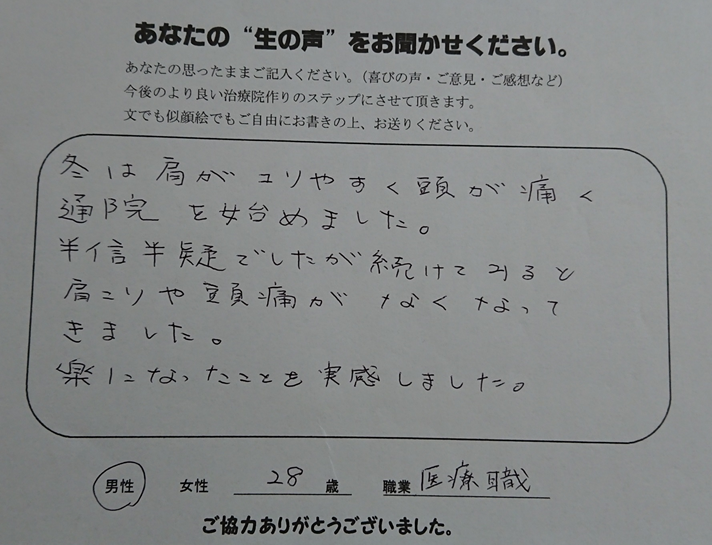 あなたの“生の声”をお聞かせください。
あなたの思ったままご記入ください。(喜びの声・ご意見・ご感想など)
今後のより良い治療院作りのステップにさせて頂きます。
文でも似顔絵でもご自由にお書きの上、お送りください。
冬は肩がコリやすく頭が痛く
通院を始めました。
半信半疑でしたが続けてみると
肩こりや頭痛がなくなって
きました。
楽になったことを実感しました。
男性 女性 28 歳 職業 医療職
ご協力ありがとうございました。